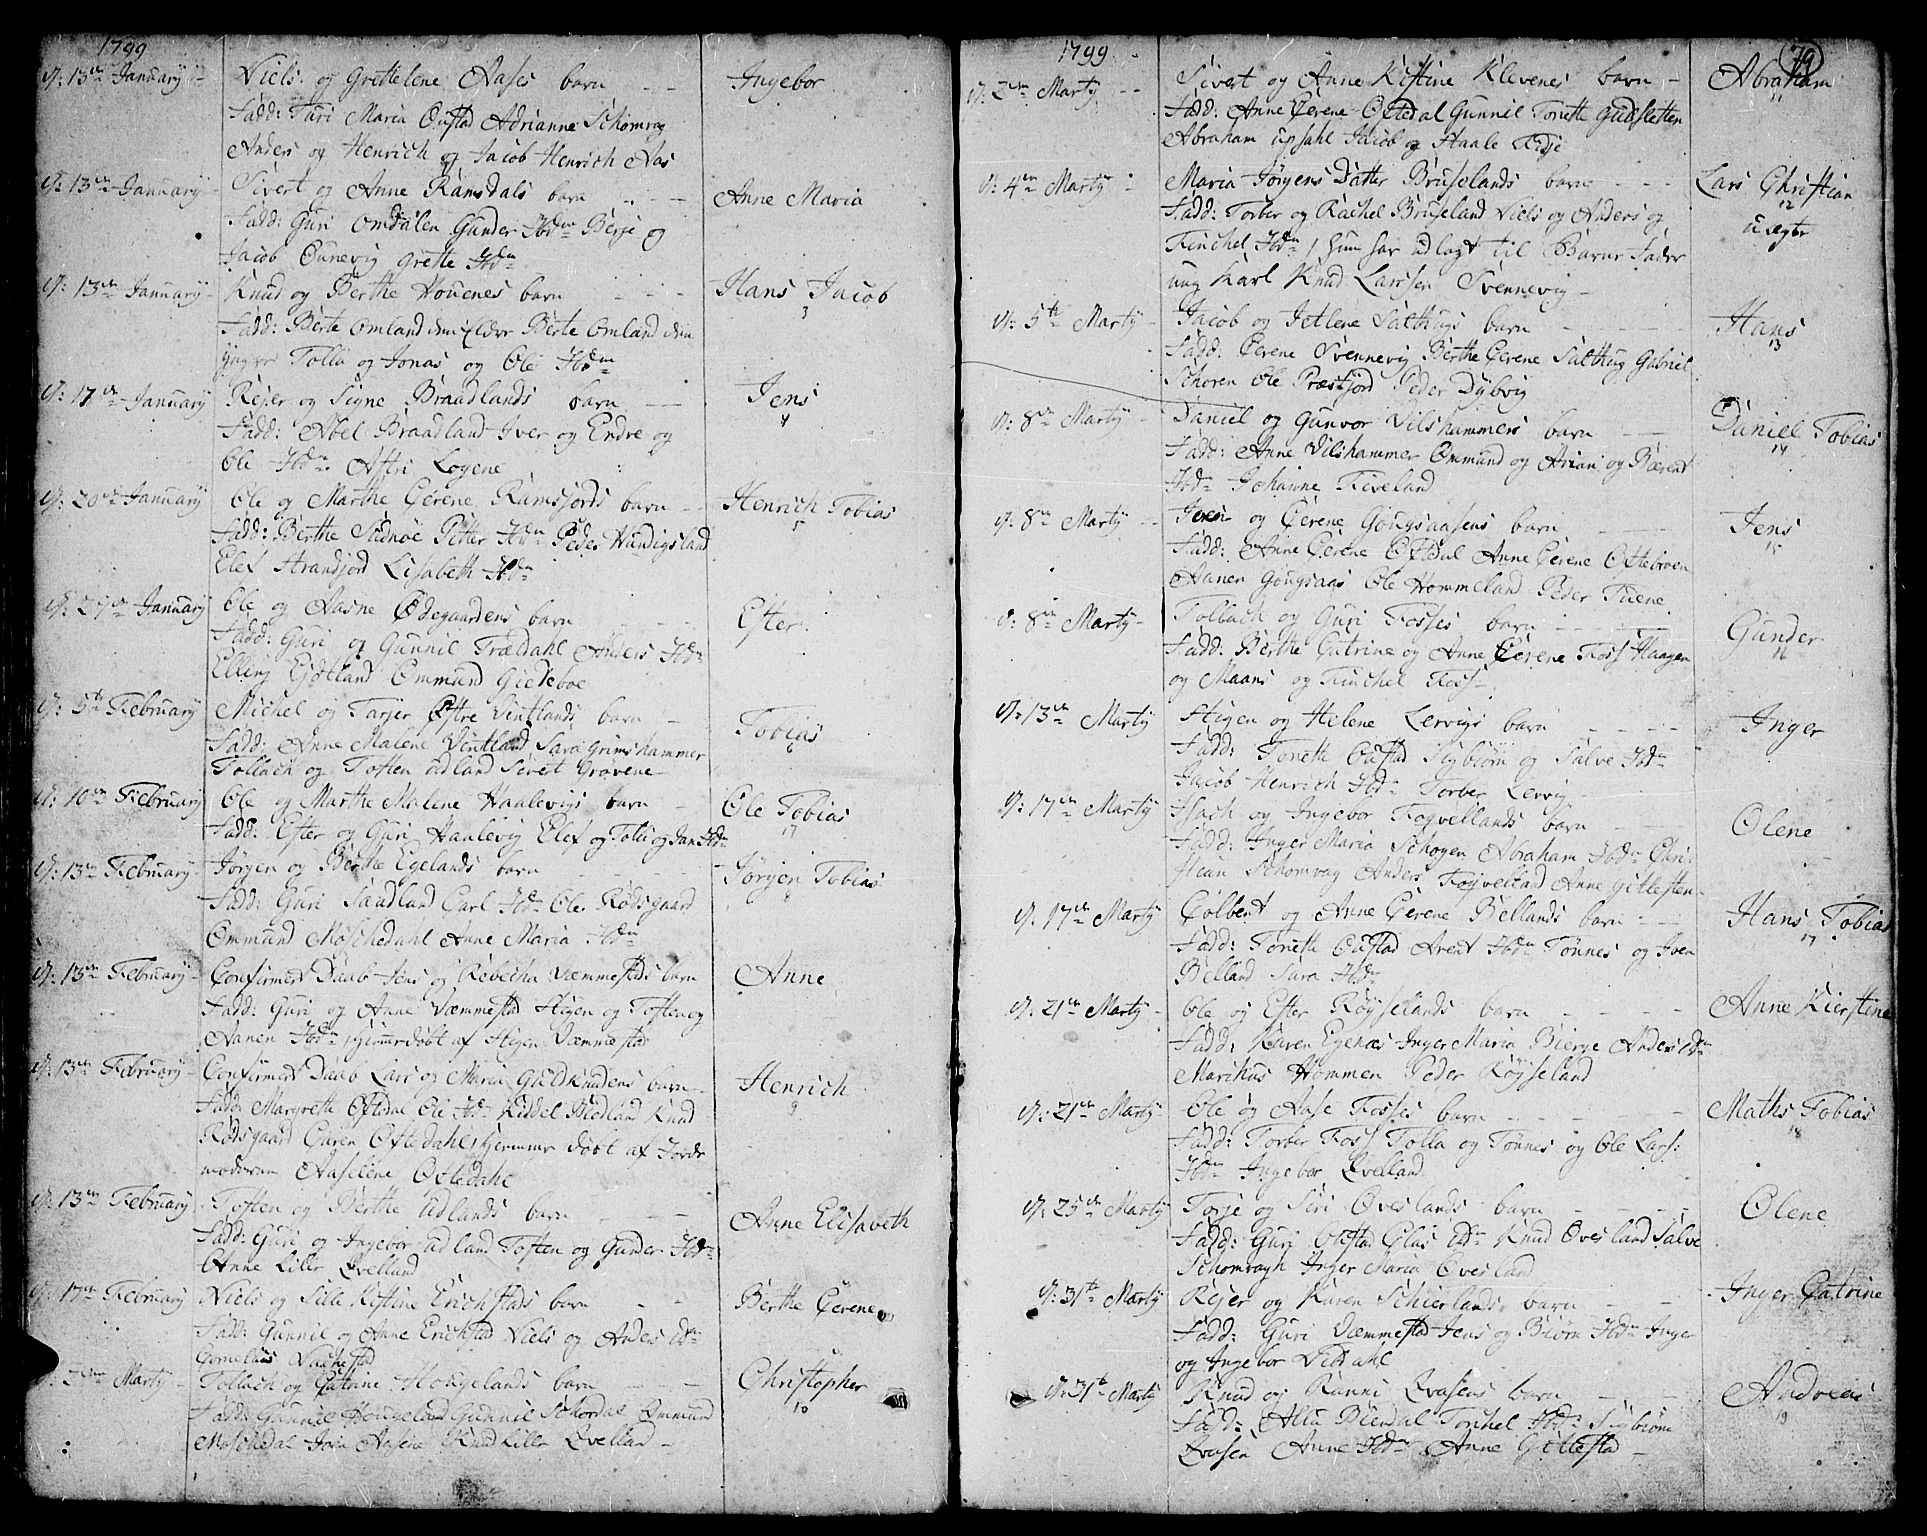 1799
d: 13de January - Niels og Grettelene Aases barn - - Ingebor
Fadd: Turi Maria Oustad Adrianne Schomvag
Anders og Henrich og Jacob Henrich Aas
d: 13de January - Sivert og Anne Ramsdals barn - - Anne Maria
Fadd: Guri Omdalen Gunder Ibdm Berge og
Jacob Ounevig Grette Ibdm
d: 13de January - Knud og Berthe Houenes barn - - Hans Jacob
3
Fadd: Berte Omland den Eldre Berte Omland den
yngre Tolla og Jonas og Ole Ibdm
d: 17de January Rejer og Signe Braadlands barn - Jens
4
Fadd: Abel Braadland Iver og Endre og
Ole Ibdm Astri Logene
d: 20de January Ole og Marthe Cerene Ramsfjords barn - Henrich Tobias
5
Fadd: Berthe Sudnøe Petter Ibdm Peder Hundigsland
Elef Strandfjord Lisabeth Ibdm
d: 27de January Ole og Aasne Ødegaardens barn - Ester
Fadd: Guri og Gunnil Trældahl Anders Ibdm
Elling Egtland Ommund Giedeboe
d: 5te February Michel og Tarjer Østre Vintlands barn - Tobias
6
Fadd: Anne Malene Vintland Sara Grimshammer
Tollach og Tosten Udland Sivert Grovene
d: 10de February Ole og Marthe Malene Haalevigs barn - Ole Tobias
17
Fadd: Ester og Guri Haalevig Elef og Tolu og Jan Ibdm
d: 13de February - Jørgen og Berthe Egelands barn - - Jørgen Tobias
8
Fadd: Guri Saudland Carl Ibdm Ole Rødsgaard
Ommund Moschedahl Anne Maria Ibdm
d: 13de February - Confirmert Daab Jens og Rebecha Væmmestads barn Anne
Fadd: Guri og Anne Væmmestad Stigen og Tosten og
Aanen Ibdm hjemmedøbt af Stigen Væmmestad
d: 13de February - Confirmert Daab Lars og Maria Guldknudens barn - Henrich
9
Fadd: Margrette Oftedal Ole Ibdm Kiddel Birkland Knud
Rødsgaard Caren Oftedahl, hjemme døbt af Jorde
moderen Aaselene Oftedahl
d: 13de February Tosten og Berthe Udlands barn - - Anne Elisabeth
Fadd: Guri og Ingebor Udland Tosten og Gunder Ibdm
Anne Lille Qvelland
d: 17de February Niels og Sille Kistine Erichstads barn - - Berthe Cerene
Fadd: Gunnil og Anne Erichstad Niels og Anders Ibdm
Cornelius Vachestad
d: 2den Marty - Tollach og Catrine Hougelands barn - - Christopher
10
Fadd: Gunnil Hougeland Gunnil Schordal Ommund
Moschedal Aasene Knud Lille Qvelland -
1799 79
d: 2den Marty - - Sivert og Anne Kistine Klevenes barn - Abraham
11
Fadd: Anne Cerene Oftedal Gunnil Tonette Gudsletten
Abraham Upsahl Jacob og Haale Kidje
d: 4de Marty - Maria Jørgens Datter Bruselands barn - - - Lars Christian
12
uægte
Fadd: Torber og Rachel Bruseland Niels og Anders og
Tiuchel Ibdm / hun har udlagt til Barne Fader
ung Karl Knud Larssen Svennevig -
d: 5te Marty - Jacob og Jetlene Salthugs barn - - - - Hans
13
Fadd: Cerene Svennevig Berthe Cerene Salthug Gabriel
Schoren Ole Præstfjord Peder Dybvig
d: 8de Marty - Daniel og Gunvor Vilshammers barn - - Daniel Tobias
14
Fadd: Anne Vilshammer Ommund og Arian og Bærent
Ibdm Johanne Fiveland
d: 8de Marty - - Iven og Cerene Gougsaasens barn - - Jens
15
Fadd: Anne Cerene Oftdal Anne Cerene Ottebroen
Aanen Gougsaas Ole Hommeland Peder Tuene
d: 8de Marty - Tollach og Guri Fosses barn - - - Gunder
16
Fadd: Berthe Catrine og Anne Cerene Foss Haagen
og Maans og Tiuchel Foss -
d: 13de Marty Stigen og Helene Lervigs barn - - - - Inger
Fadd: Tonette Oustad Sigbiørn og Salve Ibdm
Jacob Henrich Ibdm Torber Lervig -
d: 17de Marty Isach og Ingebor Fogvellands barn - - - Olene
Fadd: Inger Maria Schogen Abraham Ibdm Chri-
stian Schomvag Anders Fogvelland Anne Gitlesten -
d: 17de Marty Colbent og Anne Cerene Bellands barn - - Hans Tobias
17
Fadd: Tonette Oustad Arent Ibdm Tønnes og Iven
Belland Sara Ibdm
d: 21de Marty - Ole og Ester Røyselands barn - - - - Anne Kierstine
Fadd: Karen Egenæs Inger Maria Bierge Anders Ibdm
Marchus Hommen Peder Røyseland
d: 21de Marty - Ole og Aase Fosses barn - - - - Mathis Tobias
18
Fadd: Torber Foss Tolla og Tønnes og Ole Lars:
Ibdm Ingebor Qvelland
d: 25de Marty Torje og Siri Øveslands barn - - - - Olene
Fadd: Guri Oustad Clas Ibdm Knud Øvesland Salve
Schomvagh Inger Maria Øvesland
d: 31te Marty Rejer og Karen Schierlands barn - - - Inger Catrine
Fadd: Guri Væmmestad Jens og Biørn Ibdm Inger
og Ingebor Vitsdahl
d: 31te Marty Knud og Ranni Qvasens barn - - Andreas
19
Fadd: Alla Bierdal Torchel Ibdm Sigbiørn
Qvasen Anne Ibdm Anne Gitlestad -